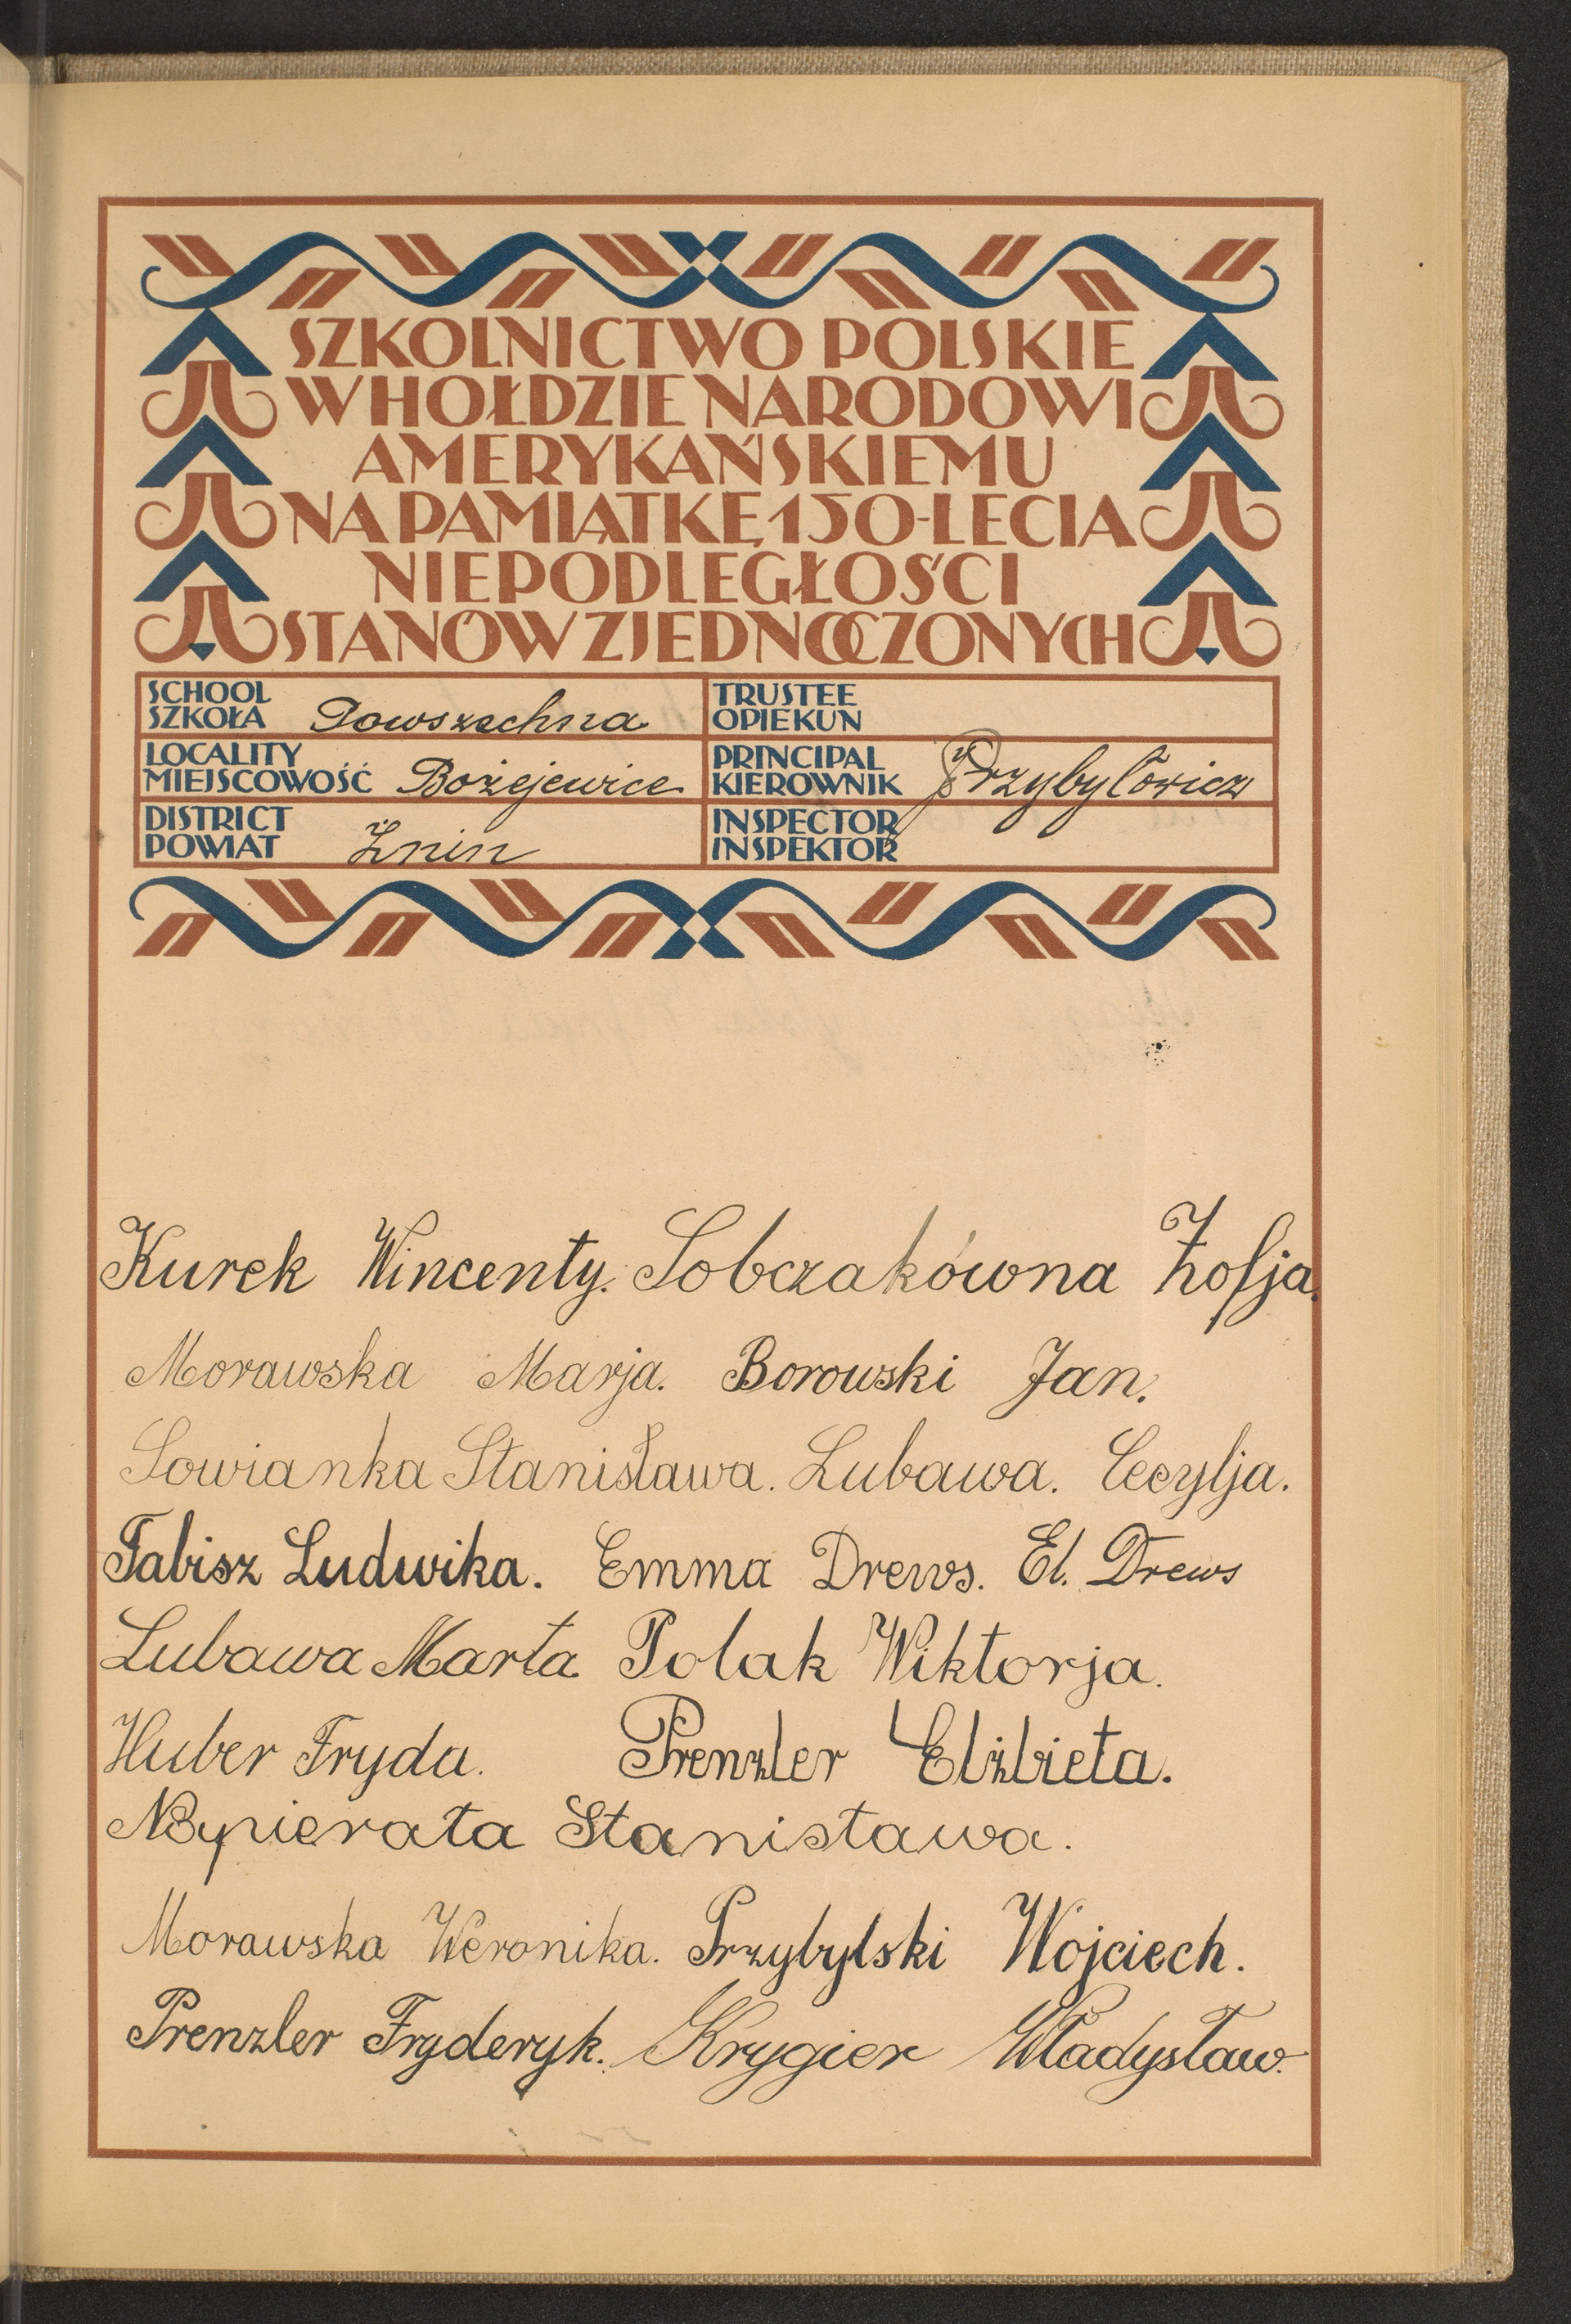 SZKOLNICTWO POLSKIE
W HOŁDZIE NARODOWI
AMERYKAŃSKIEMU
NA PAMIĄTKĘ 150-LECIA
NIEPODLEGŁOŚCI
STANÓW ZJEDNOCZONYCH
SCHOOL
SZKOŁA Powszechna
TRUSTEE
OPIEKUN
LOCALITY
MIEJSCOWOŚĆ Bożejewice
PRINCIPAL
KIEROWNIK Przybyłowicz
DISTRICT
POWIAT Żnin
INSPECTOR
INSPEKTOR
Kurek Wincenty. Sobczakówna Zofja.
Morawska Marja. Borowski Jan.
Sowianka Stanisława. Lubawa. Cecylja.
Tabisz Ludwika. Emma Drews. El. Drews
Lubawa Marta Polak Wiktorja.
Huber Fryda. Prenzler Elżbieta.
Stanisława.
Morawska Weronika. Przybylski Wojciech.
Prenzler Fryderyk. Krygier Władysław.